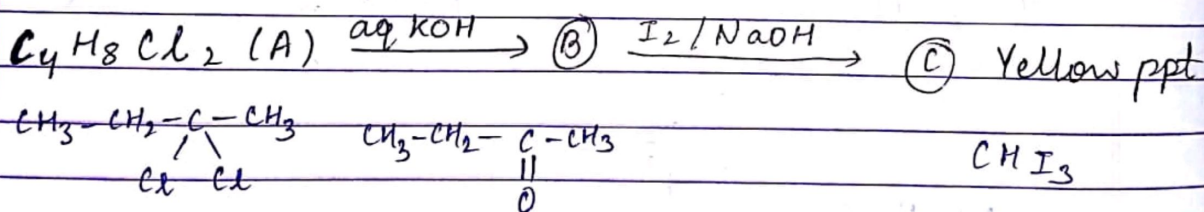 C4H8Cl2 (A) aq KOH → Ⓑ I2/NaOH → Ⓒ Yellow ppt
CH3-CH2-C-CH3 CH3-CH2-C-CH3 CHI3
Cl Cl O